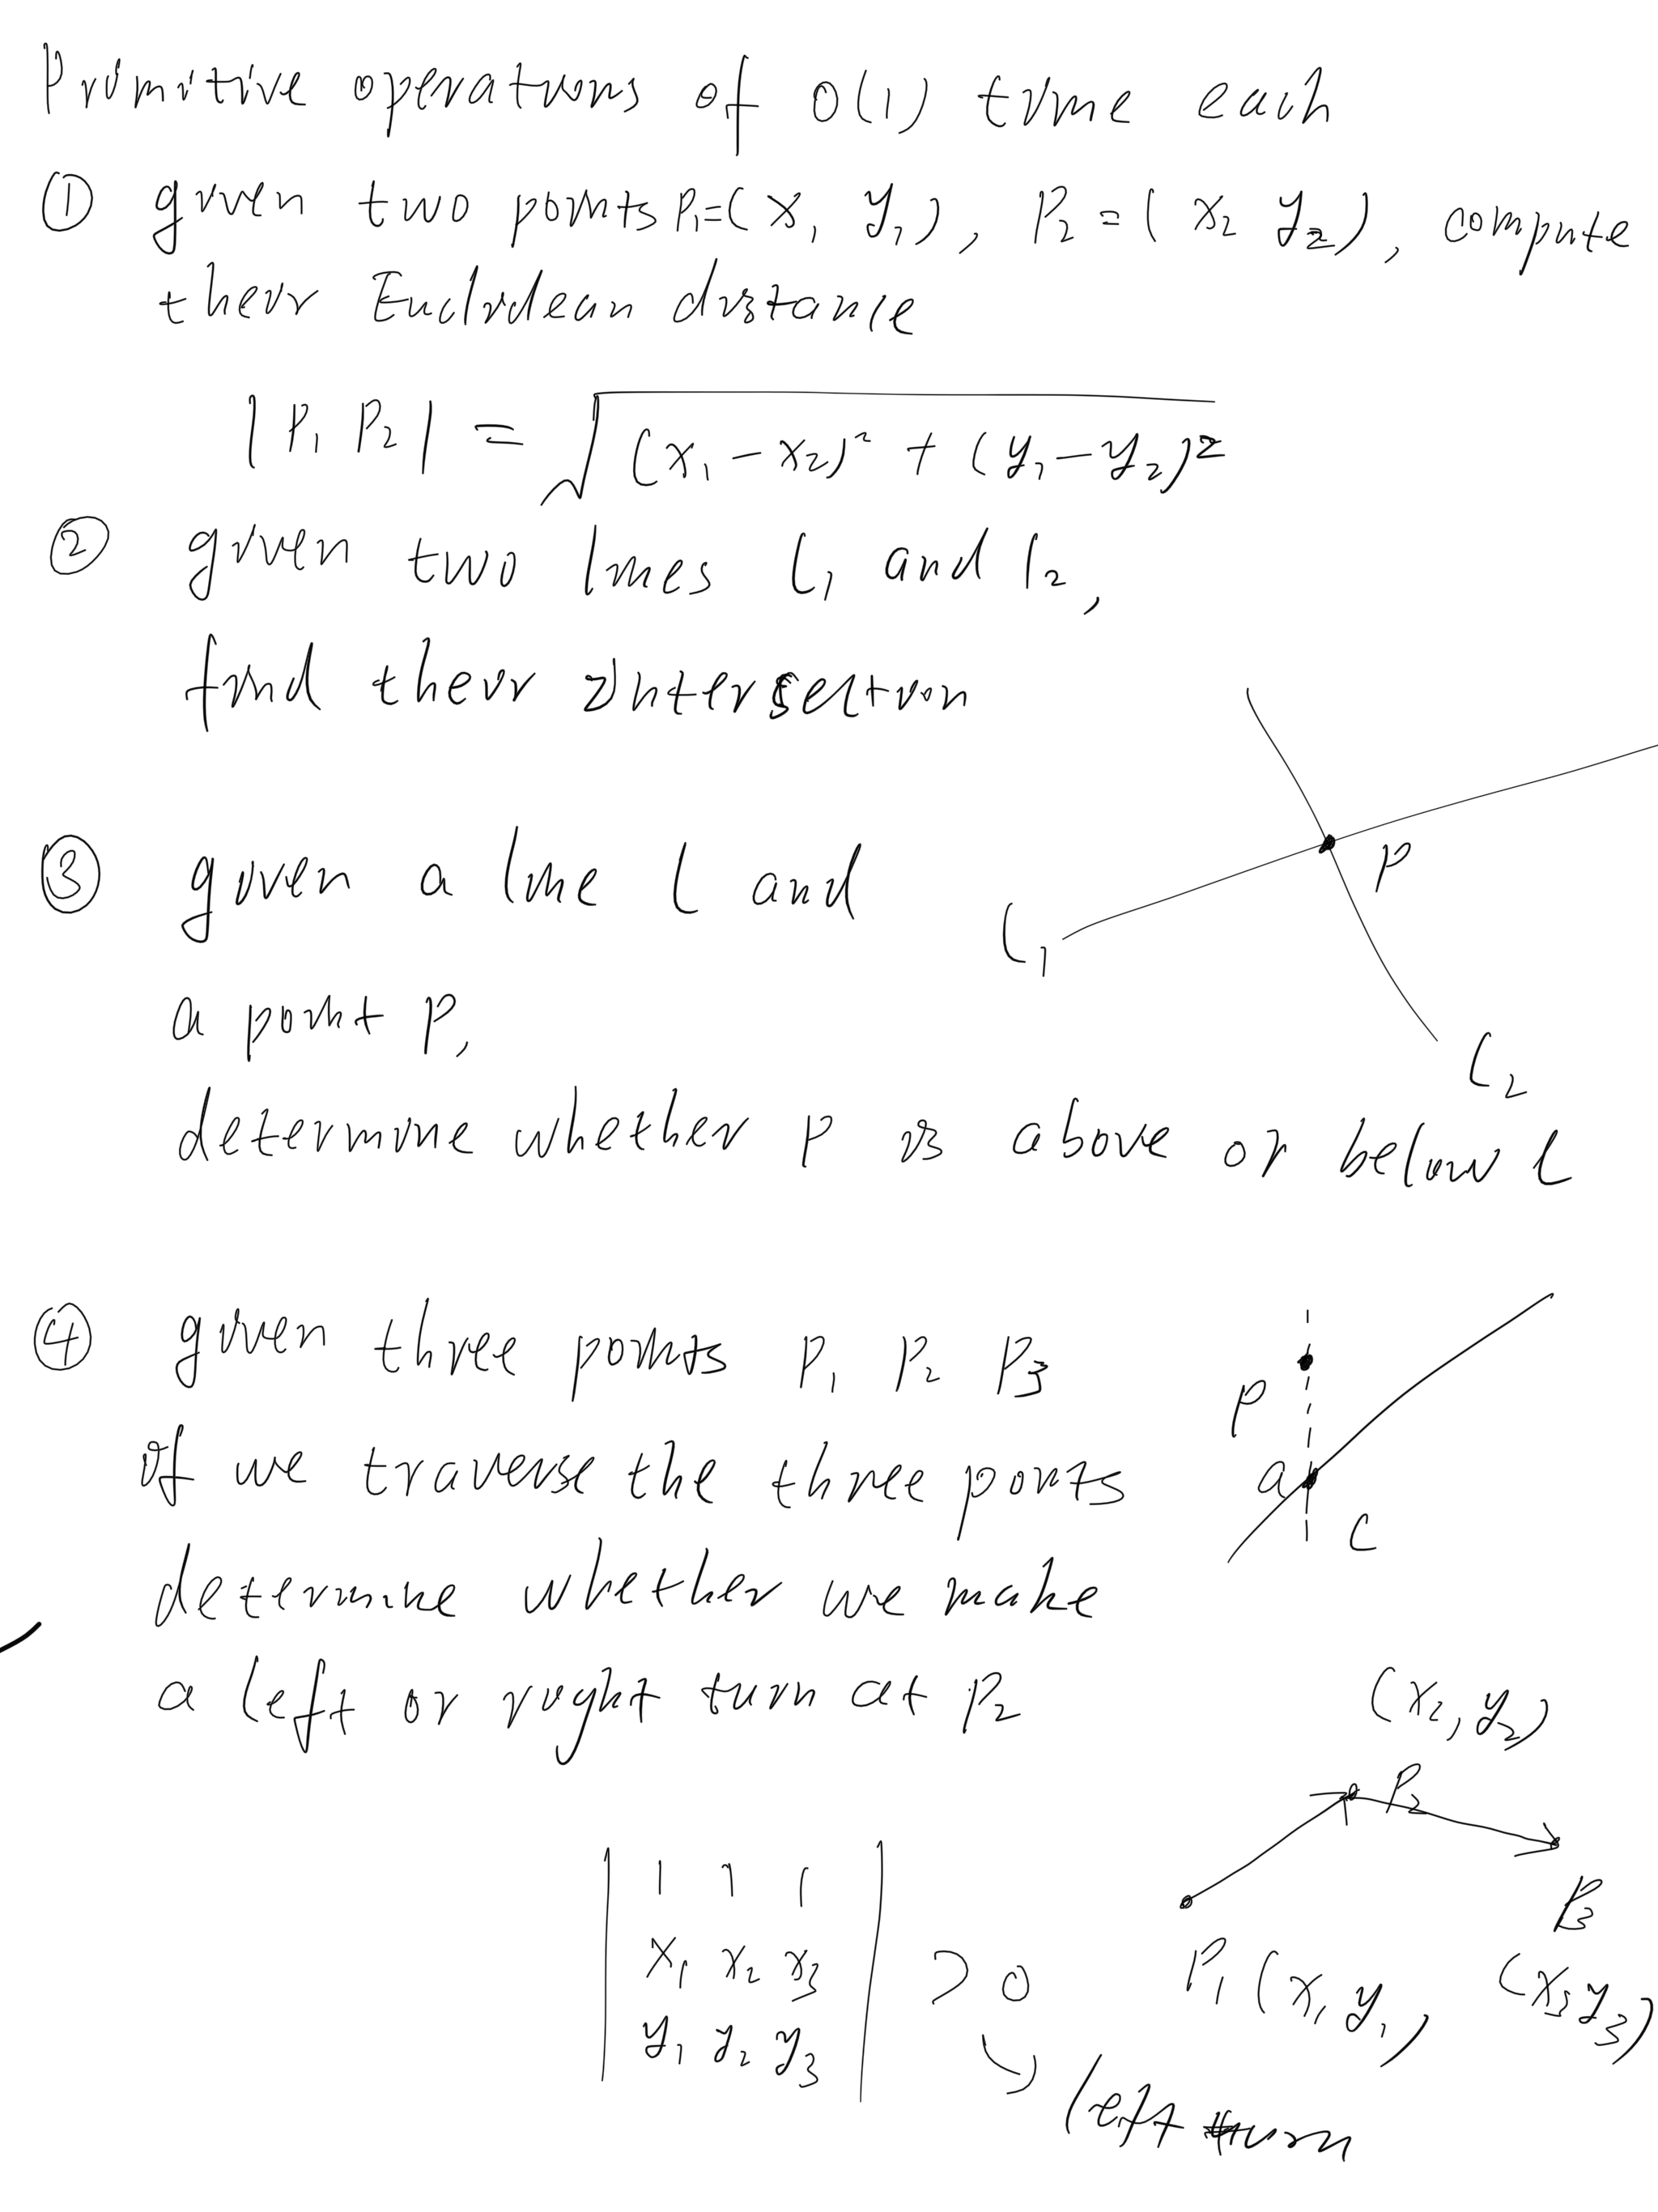 Primitive operations of O(1) time each
① given two points P₁=(x₁ y₁), P₂=(x₂ y₂), compute
their Euclidean distance
|P₁ P₂| = √((x₁-x₂)² + (y₁-y₂)²)
② given two lines l₁ and l₂,
find their intersection
③ given a line l and
a point P,
determine whether P is above or below l
P
l₁
l₂
④ given three points P₁ P₂ P₃
if we traverse the three points
determine whether we make
a left or right turn at P₂
P
a
l
(x₂, y₂)
P₂
P₃
P₁ (x₁ y₁)
(x₃ y₃)
| 1 1 1 |
| x₁ x₂ x₃ | > 0
| y₁ y₂ y₃ |
left turn